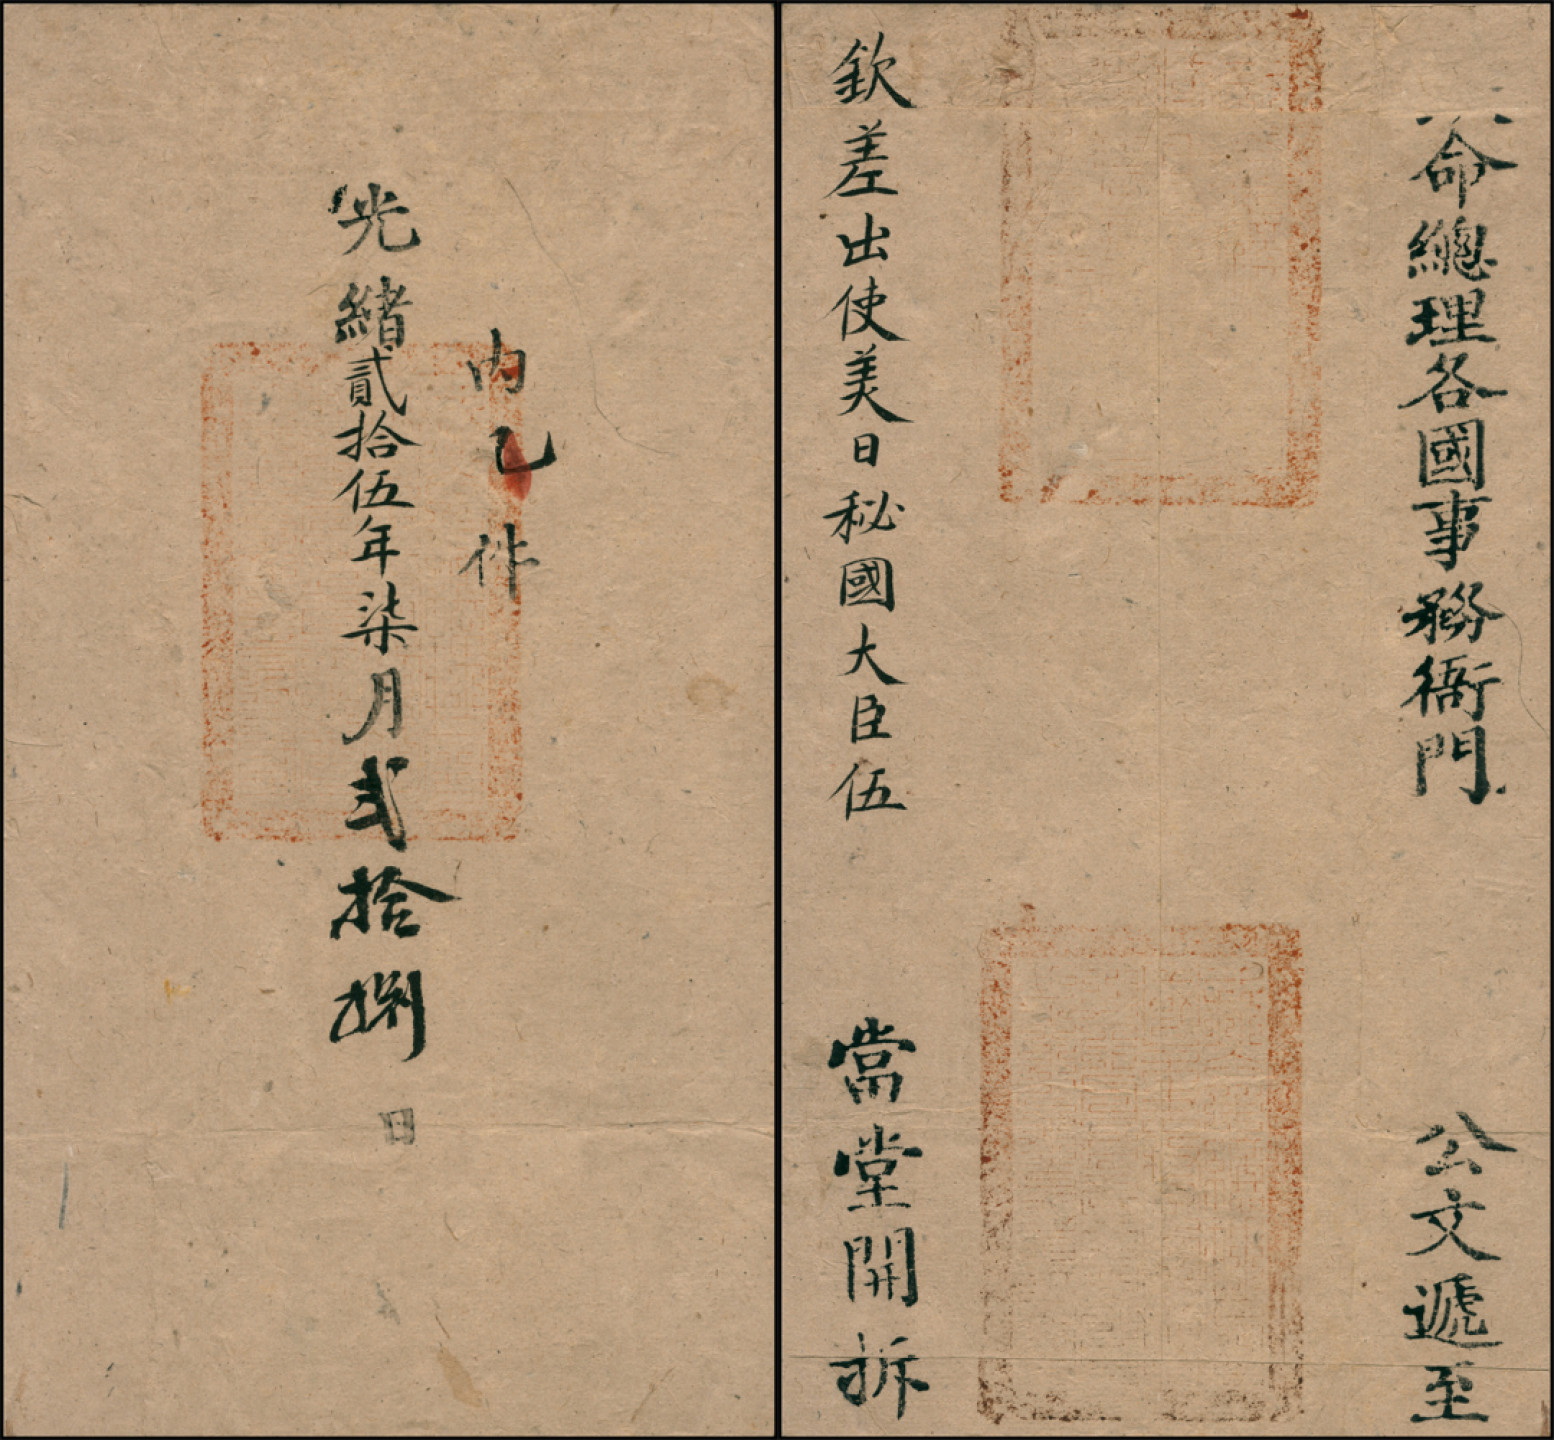 命總理各國事務衙門 公文遞至
欽差出使美日秘國大臣伍 當堂開拆
内乙件
光緒貳拾伍年柒月弍拾捌日